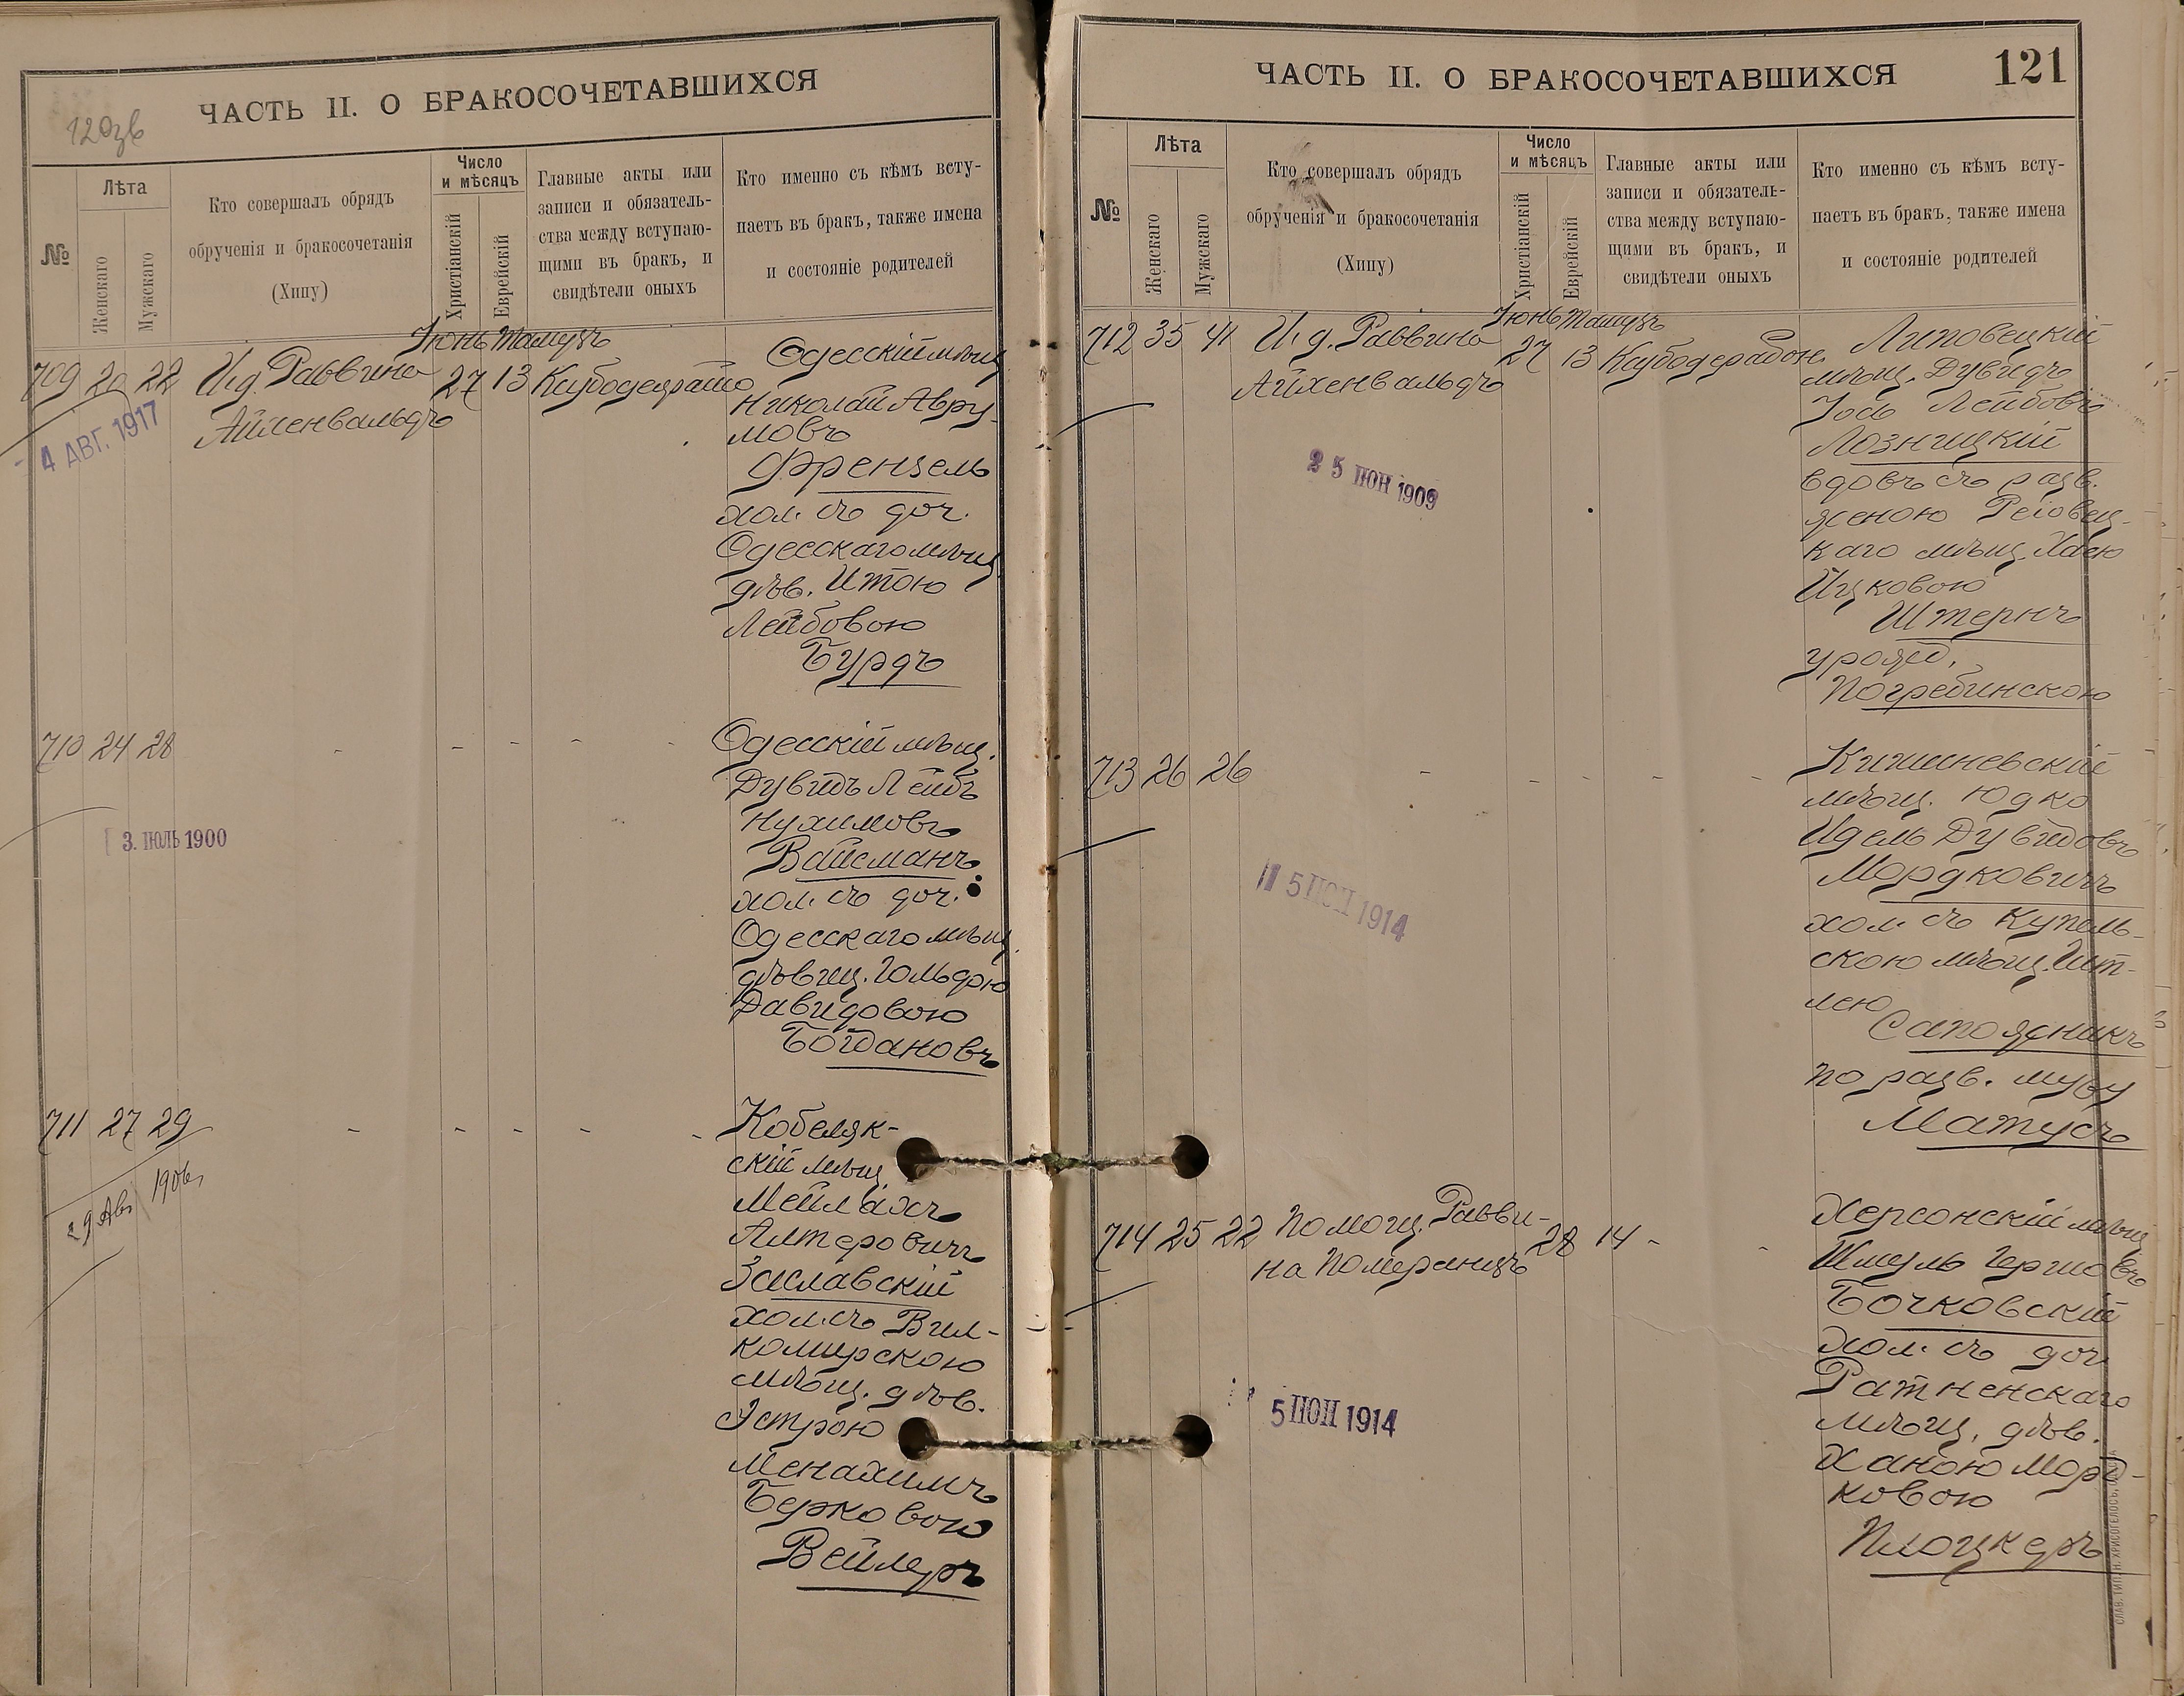 ЧАСТЬ II. О БРАКОСОЧЕТАВШИХСЯ
№
Лѣта
Женскаго
Мужскаго
Кто совершалъ обрядъ
обрученія и бракосочетанія
(Хипу)
Число
и мѣсяцъ
Христіанскій
Еврейскій
Главные акты или
записи и обязатель-
ства между вступаю-
щими въ бракъ, и
свидѣтели оныхъ
Кто именно съ кѣмъ всту-
паетъ въ бракъ, также имена
и состояніе родителей
Іюнь Тамузъ
709 20 22 И.д. Раввина 27 13
Айхенвальдъ
4 АВГ. 1917
Одесскій мѣщ.
Николай Авру-
мовъ
Френцель
хол. съ доч.
Одесскаго мѣщ.
дѣв. Итою
Лейбовою
Бурдъ
710 24 28 - - - - -
3. ІЮЛЬ 1900
Одесскій мѣщ.
Дувидъ Лейбъ
Нухимовъ
Вайсманъ
хол. съ доч.
Одесскаго мѣщ.
дѣвиц. Гольдою
Давидовою
Богдановъ
711 27 29 - - - - -
29 Авг 1906
Кобеляк-
скій мѣщ.
Мейлахъ
Алтеровичъ
Заславскій
хол. съ Вил-
комирскою
мѣщ. дѣв.
Эстрою
Менахимъ
Берковою
Вейлеръ
ЧАСТЬ II. О БРАКОСОЧЕТАВШИХСЯ
121
№
Лѣта
Женскаго
Мужскаго
Кто совершалъ обрядъ
обрученія и бракосочетанія
(Хипу)
Число
и мѣсяцъ
Христіанскій
Еврейскій
Главные акты или
записи и обязатель-
ства между вступаю-
щими въ бракъ, и
свидѣтели оныхъ
Кто именно съ кѣмъ всту-
паетъ въ бракъ, также имена
и состояніе родителей
Іюнь Тамузъ
712 35 41 И.д. Раввина 27 13
Айхенвальдъ
25 ІЮН 1909
Липовецкій
мѣщ. Дувидъ
Іось Лейбовъ
Лозницкій
вдовъ съ разв.
женою
каго мѣщ. Хаею
Ицковою
Штернъ
урожд.
Погребинскою
713 26 26 - - - - -
5 ІЮЛ 1914
Кишиневскій
мѣщ. Юдко
Идель Дувидовъ
Мордковичъ
хол. съ Купель-
скою мѣщ. Ит-
лею
Сапожникъ
по разв. мужу
Матусъ
714 25 22 Помощ. Равви- 28 14 - -
на Померанцъ
5 ІЮЛ 1914
Херсонскій мѣщ.
Шмуль Гершовъ
Бочковскій
хол. съ доч.
Ратненскаго
мѣщ. дѣв.
Ханою Морд-
ковою
Плоцкеръ